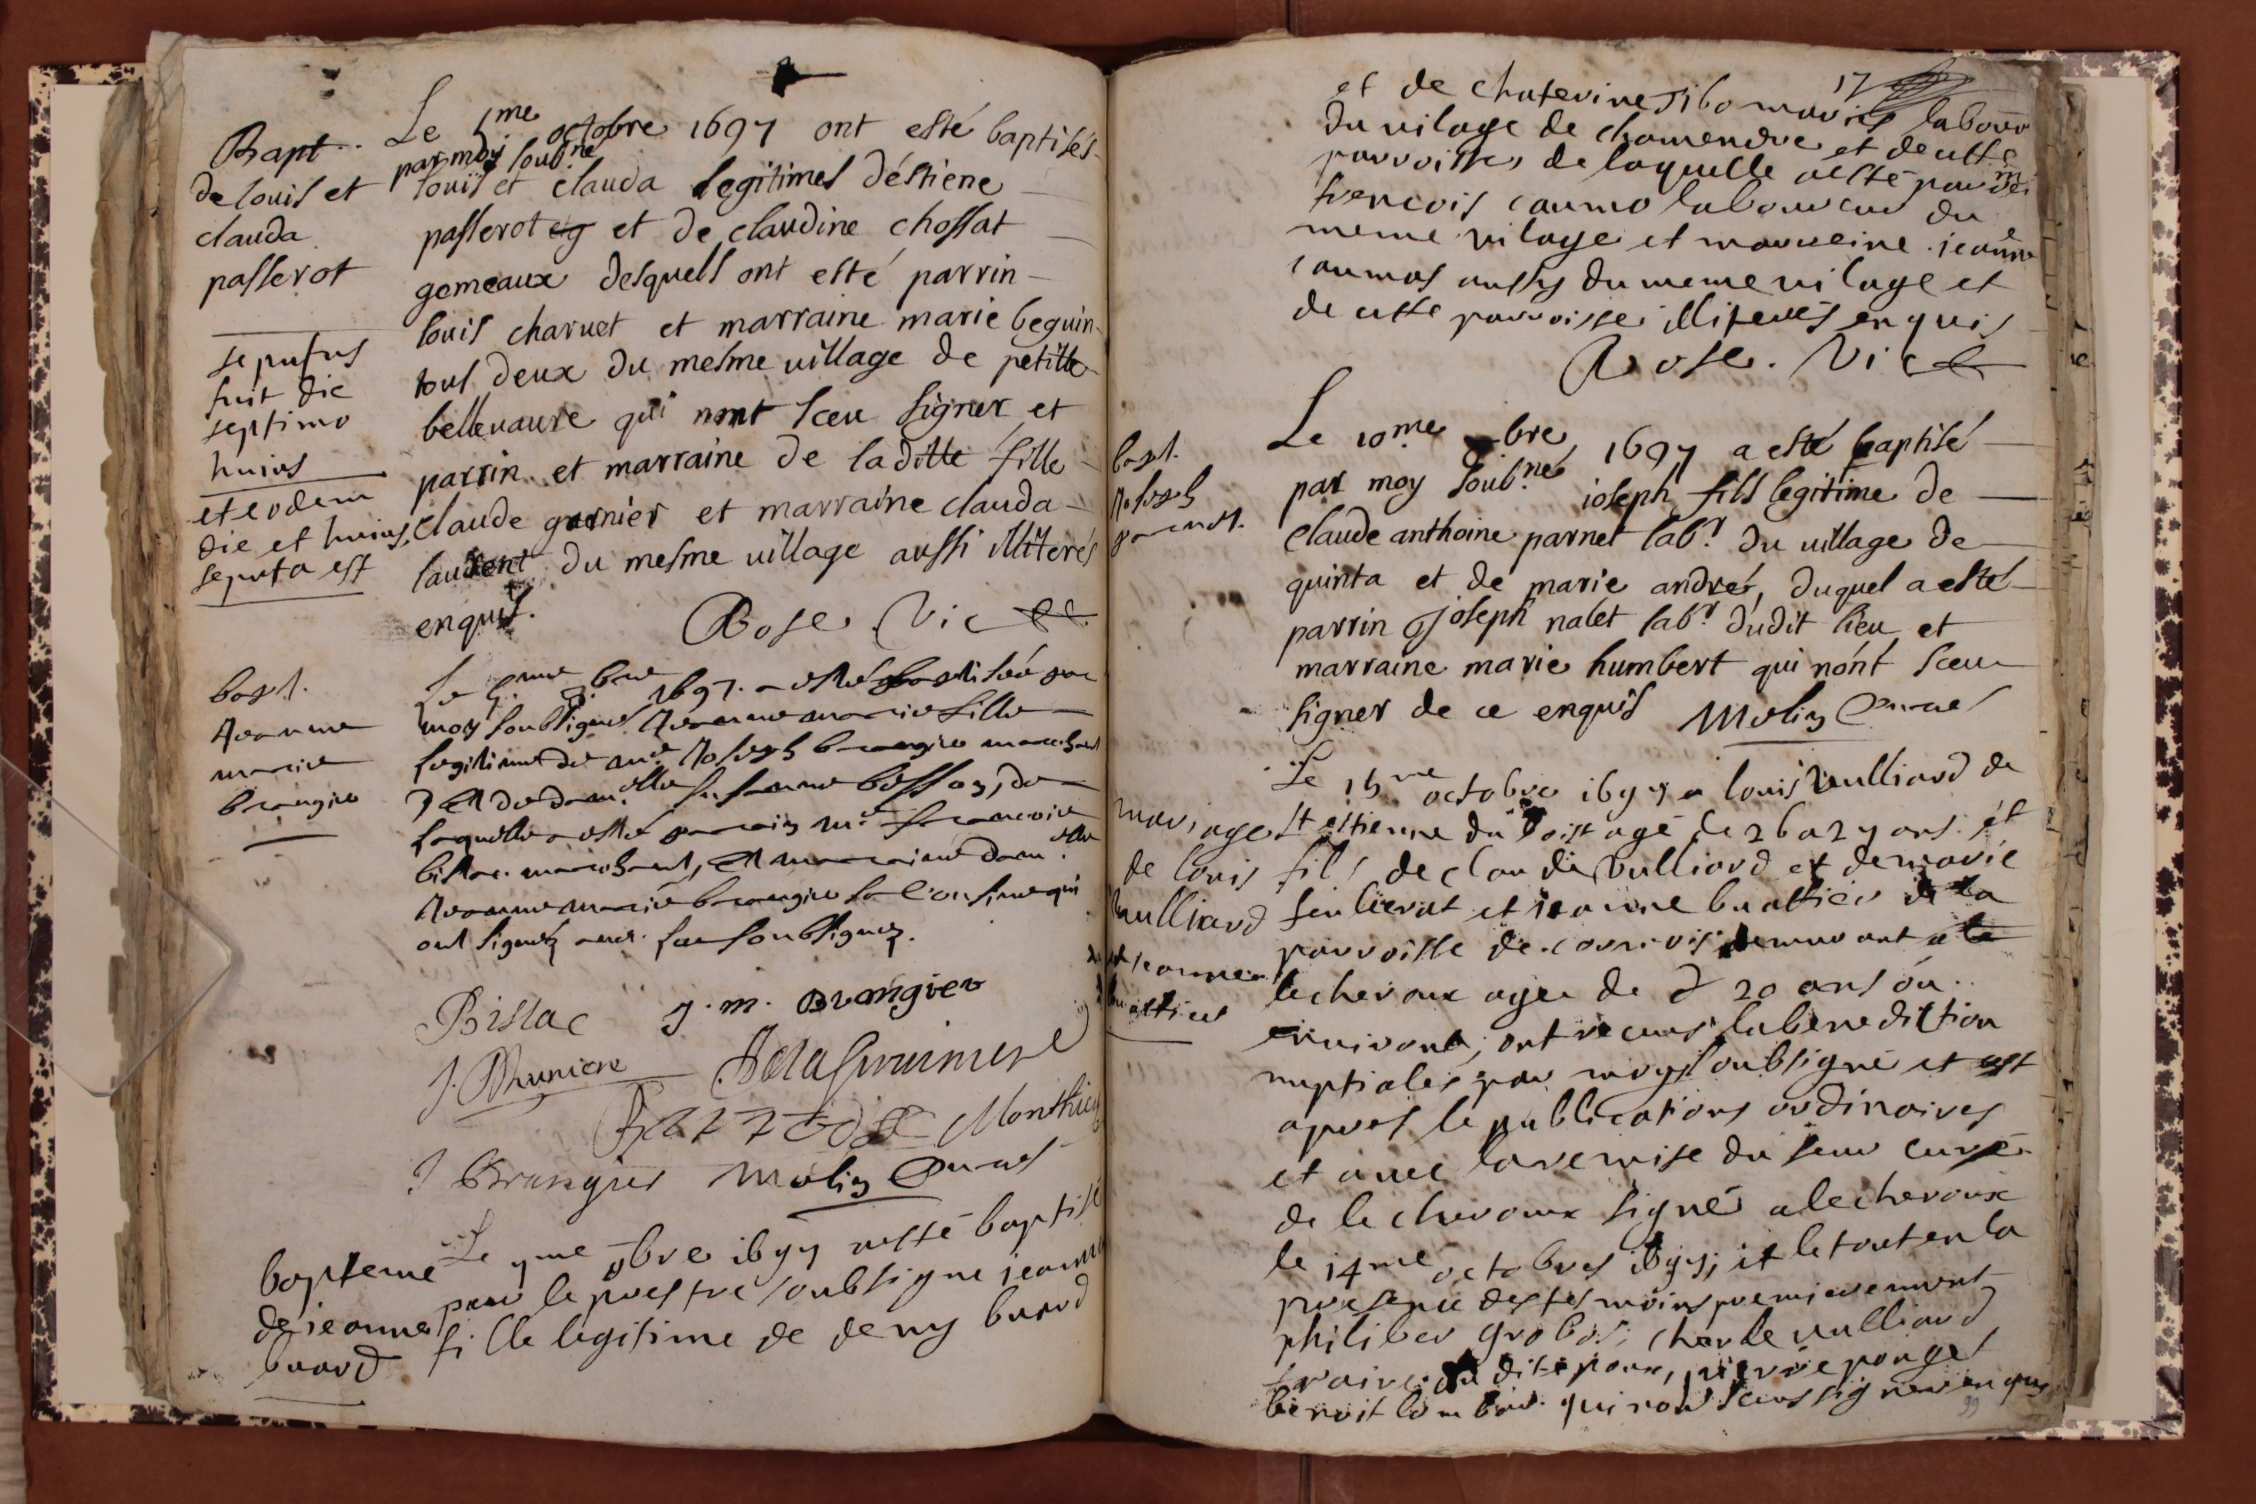 Bapt..
de louis et
clauda
passerot
sepultus
fuit die
septimo
huius
et eodem
die et huius,
sepulta est
Le 5me octobre 1697 ont esté baptisés
par moy soubné
louis et clauda legitimes d'éstiene
passerot et de claudine chossat
gemeaux desquels ont esté parrin
louis charuet et marraine marie beguin
tous deux du mesme uillage de petitte
belleuaure qui nont sceu signer et
parrin et marraine de laditte fille
claude garnier et marraine clauda
laurent du mesme uillage aussi illiterés
enquis.
Rose Vic
bapt.
Jeanne
marie
brangier
Le 5.me 8.bre 1697. a esté baptisée par
moy soubsigné Jeanne marie fille
legitime de mre Joseph brangier marchant
et de dam.elle susanne besson, de
laquelle a esté parrain mr francois
bissac marchant, et marraine dam.elle
Jeanne marie brangier sa cousine qui
ont signéz auec les soubsignez.
Bissac J. m. Brangier
J. Bruniere
Monthieu
J Brangier Molin Curé
bapteme
de ieanne
buard
Le 9me 8bre 1697 a esté baptisé
par le prestre soubsigne ieanne
fille legitime de deny buard
17
et de chaterine maries labour
du uilage de chamendre et de cette
parroisse, de laquelle a esté parrin
francois caumo laboureur du
meme uilage et marreine ieanne
caumos aussy du meme uilage et
de cette parroisse illiterés enquis
Rose. Vic
bapt.
Joseph
parnet.
Le 10me 8bre 1697 a esté baptisé
par moy soub.né ioseph fils legitime de
Claude anthoine parnet lab.r du uillage de
quinta et de marie andreé, duquel a esté
parrin joseph nalet lab.r dudit lieu et
marraine marie humbert qui nónt sceu
signer de ce enquis Molin Curé
mariage
de louis
vulliard
et ieanne
buattier
Le 15me octobre 1697 a louis vulliard de
St estienne du bois agé de 26 a 27 ans et
fils de claude vulliard et de marie
feulierat et ieanne buattier de la
parroisse de demeurant a
lecheroux agee de 20 ans ou
enuiron, ont receus la benediction
nuptiales par moy soubsigné et est
apres le publications ordinaires
et auec la remise du sieur curé
de lecheroux signé a lecheroux
le 14me octobres 1697, et le tout en la
presence des tesmoins premierement
philiber grobos, charle vulliard
fraire du dit epoux, pierre ponget
benoit qui nont sceus signer enquis